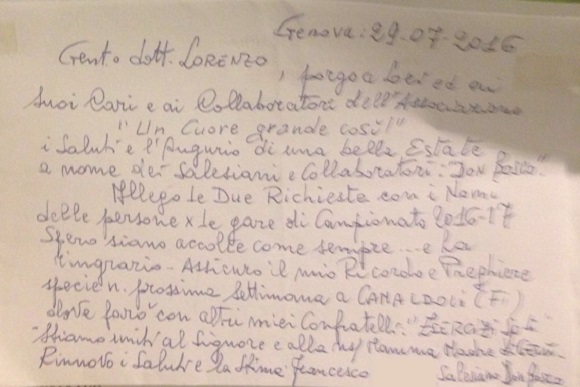 Genova: 29-07-2016
Gent.o dott. LORENZO,
porgo a Lei ed ai
suoi Cari e ai Collaboratori dell'Associazione
"Un Cuore grande così!"
i Saluti e l'Augurio di una bella Estate
a nome dei Salesiani e Collaboratori: "Don Bosco".
Allego le Due Richieste con i Nomi
delle persone x le gare di Campionato 2016-17
Spero siano accolte come sempre... e La
ringrazio - Assicuro il mio Ricordo e Preghiere
specie n. prossima settimana a CAMALDOLI (Fi)
dove farò con altri miei Confratelli: "ESERCIZI
Stiamo uniti al Signore e alla ns/ Mamma Madre
Rinnovo i Saluti e la Stima Francesco
Salesiano Don Bosco